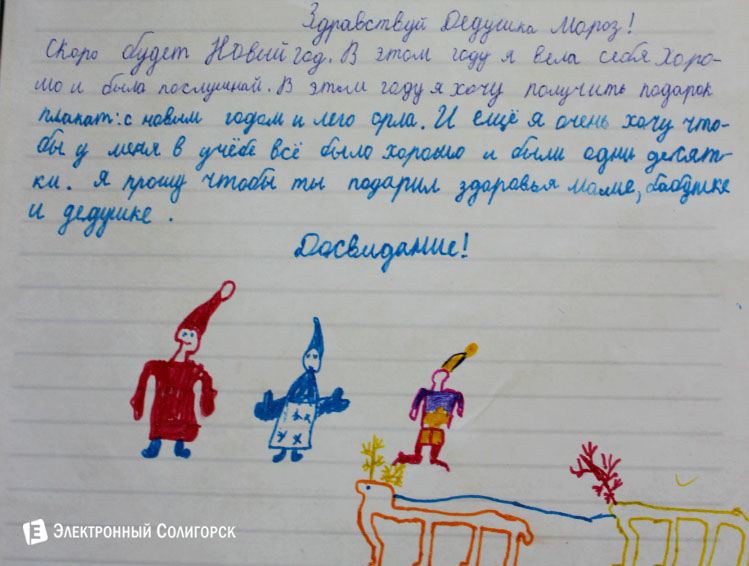 Здравствуй Дедушка Мороз!
Скоро будет Новый год. В этом году я вела себя хоро-
шо и была послушнай. В этом году я хочу получить подарок
плакат: с новым годом и лего орла. И ещё я очень хочу что-
бы у меня в учёбе всё было хорошо и были одни десят-
ки. Я прошу чтобы ты подарил здоровья маме, бабушке
и дедушке.
Досвидание!
Е Электронный Солигорск